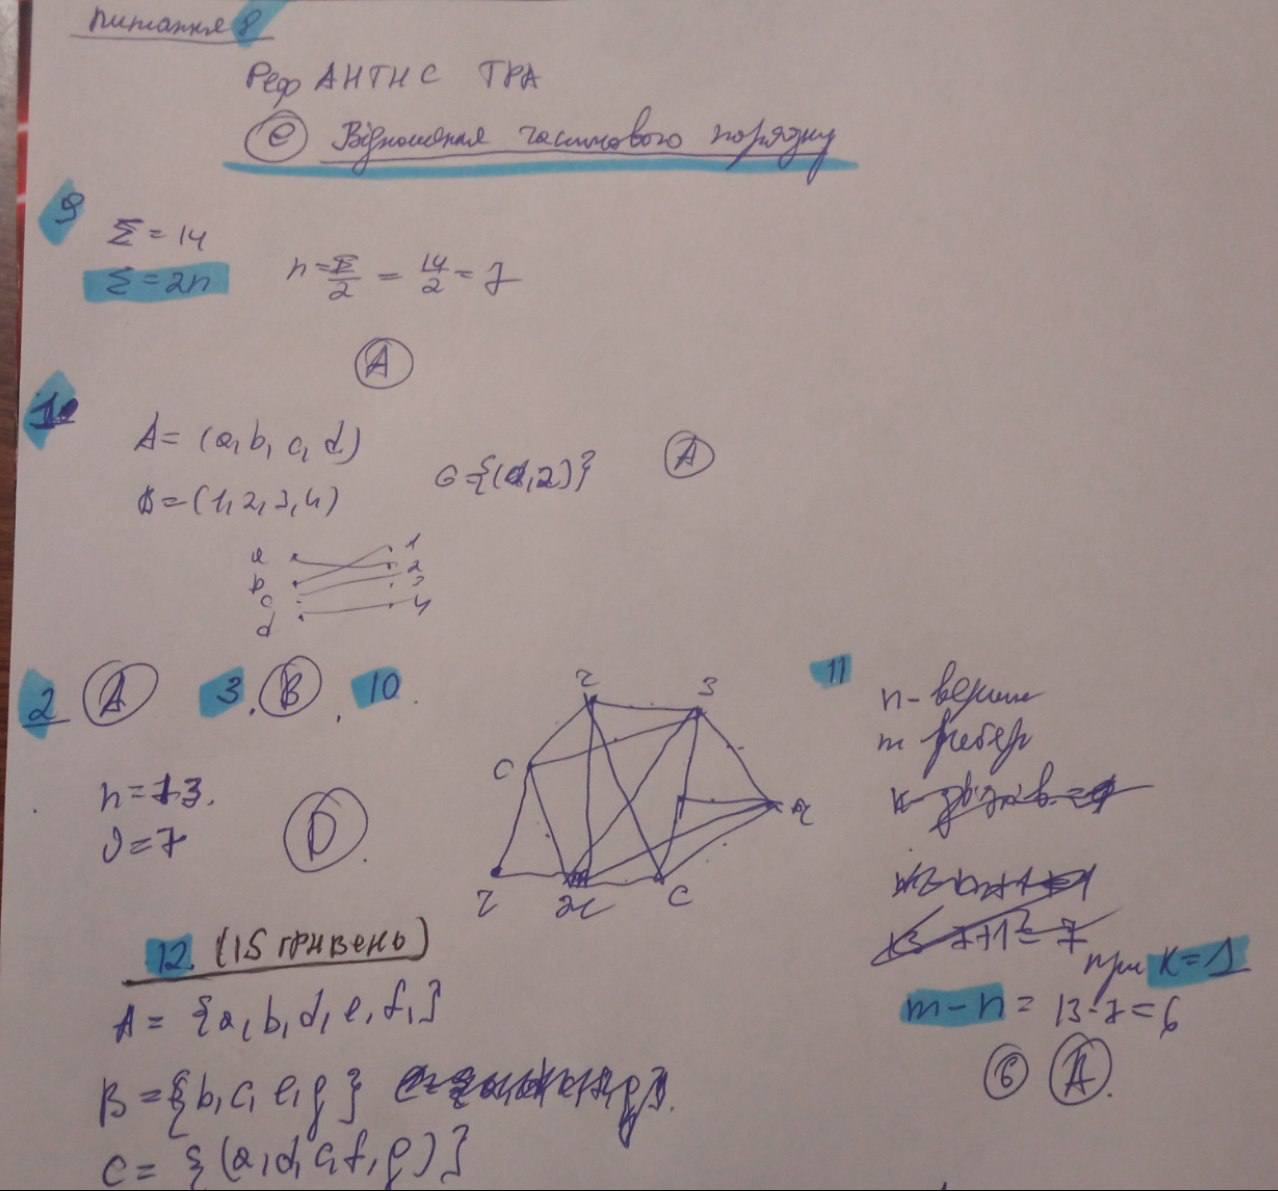 Питання 8
Реф АНТИС ТРА
e Відношення часткового порядку
9
Σ = 14
Σ = 2n
n = Σ/2 = 14/2 = 7
A
1
A = (a, b, c, d)
B = (1, 2, 3, 4)
G = {(d, 2)}
A
a 1
b 2
c 3
d 4
2 A 3. B. 10.
n = 13.
D
2 3
C
2 C
11
n - вершин
m ребер
при k = 1
m - n = 13 - 7 = 6
6 A.
12. (15 гривень)
A = {a, b, d, e, f,}
B = {b, c, e, g}
C = {(a, d, c, f, g)}